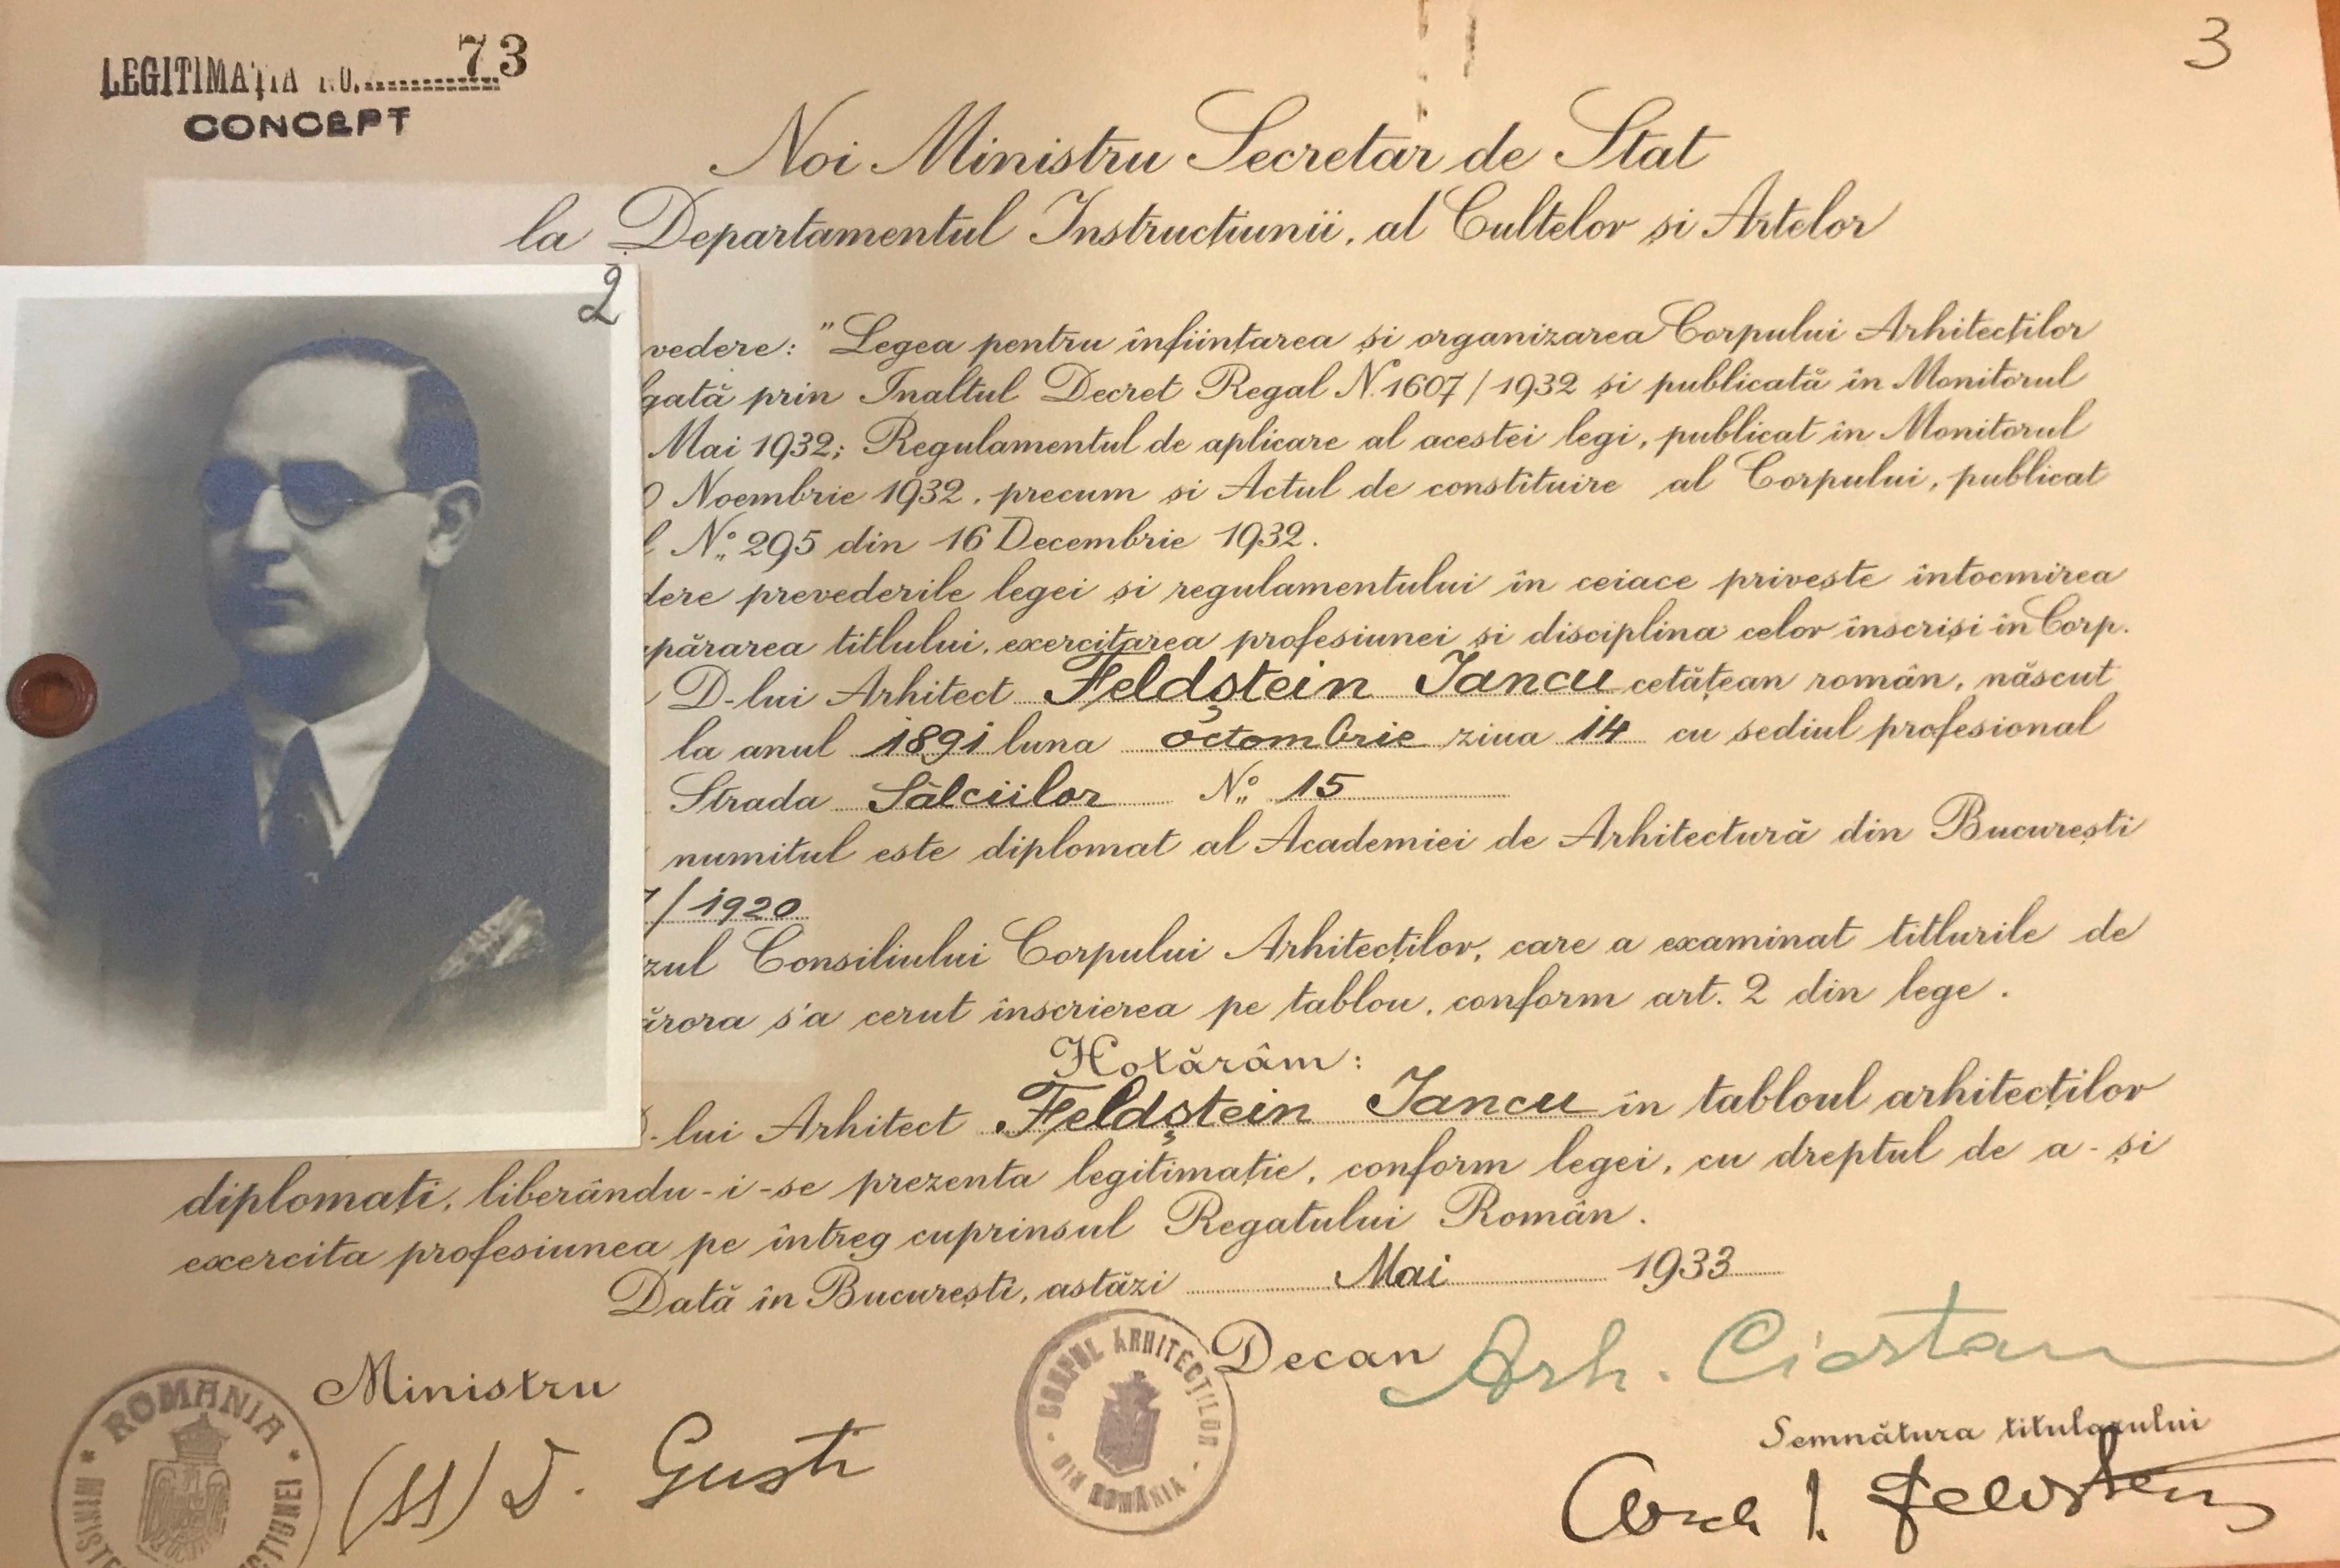 LEGITIMAȚIA NO. 73
CONCEPT
3
Noi Ministru Secretar de Stat
la Departamentul Instrucțiunii, al Cultelor și Artelor
2
vedere: "Legea pentru înființarea și organizarea Corpului Arhitecților
gată prin Inaltul Decret Regal N. 1607/1932 și publicată în Monitorul
Mai 1932; Regulamentul de aplicare al acestei legi, publicat în Monitorul
Noembrie 1932, precum și Actul de constituire al Corpului, publicat
No. 295 din 16 Decembrie 1932.
dere prevederile legei și regulamentului în ceiace privește întocmirea
părarea titlului, exercitarea profesiunei și disciplina celor înscriși în Corp.
D-lui Arhitect Feldștein Iancu cetățean român, născut
la anul 1891 luna octombrie ziua 14 cu sediul profesional
Strada Sălciilor No. 15
numitul este diplomat al Academiei de Arhitectură din București
/1920
zul Consiliului Corpului Arhitecților, care a examinat titlurile de
ărora s'a cerut înscrierea pe tablou, conform art. 2 din lege.
Hotărâm:
-lui Arhitect Feldștein Iancu în tabloul arhitecților
diplomați, liberându-i-se prezenta legitimație, conform legei, cu dreptul de a-și
exercita profesiunea pe întreg cuprinsul Regatului Român.
Dată în București, astăzi Mai 1933
Ministru
(ss) D. Gusti
ROMANIA
CORPUL ARHITECȚILOR
DIN ROMÂNIA
Decan Arh. Ciortan
Semnătura titularului
Arch I. Feldstein